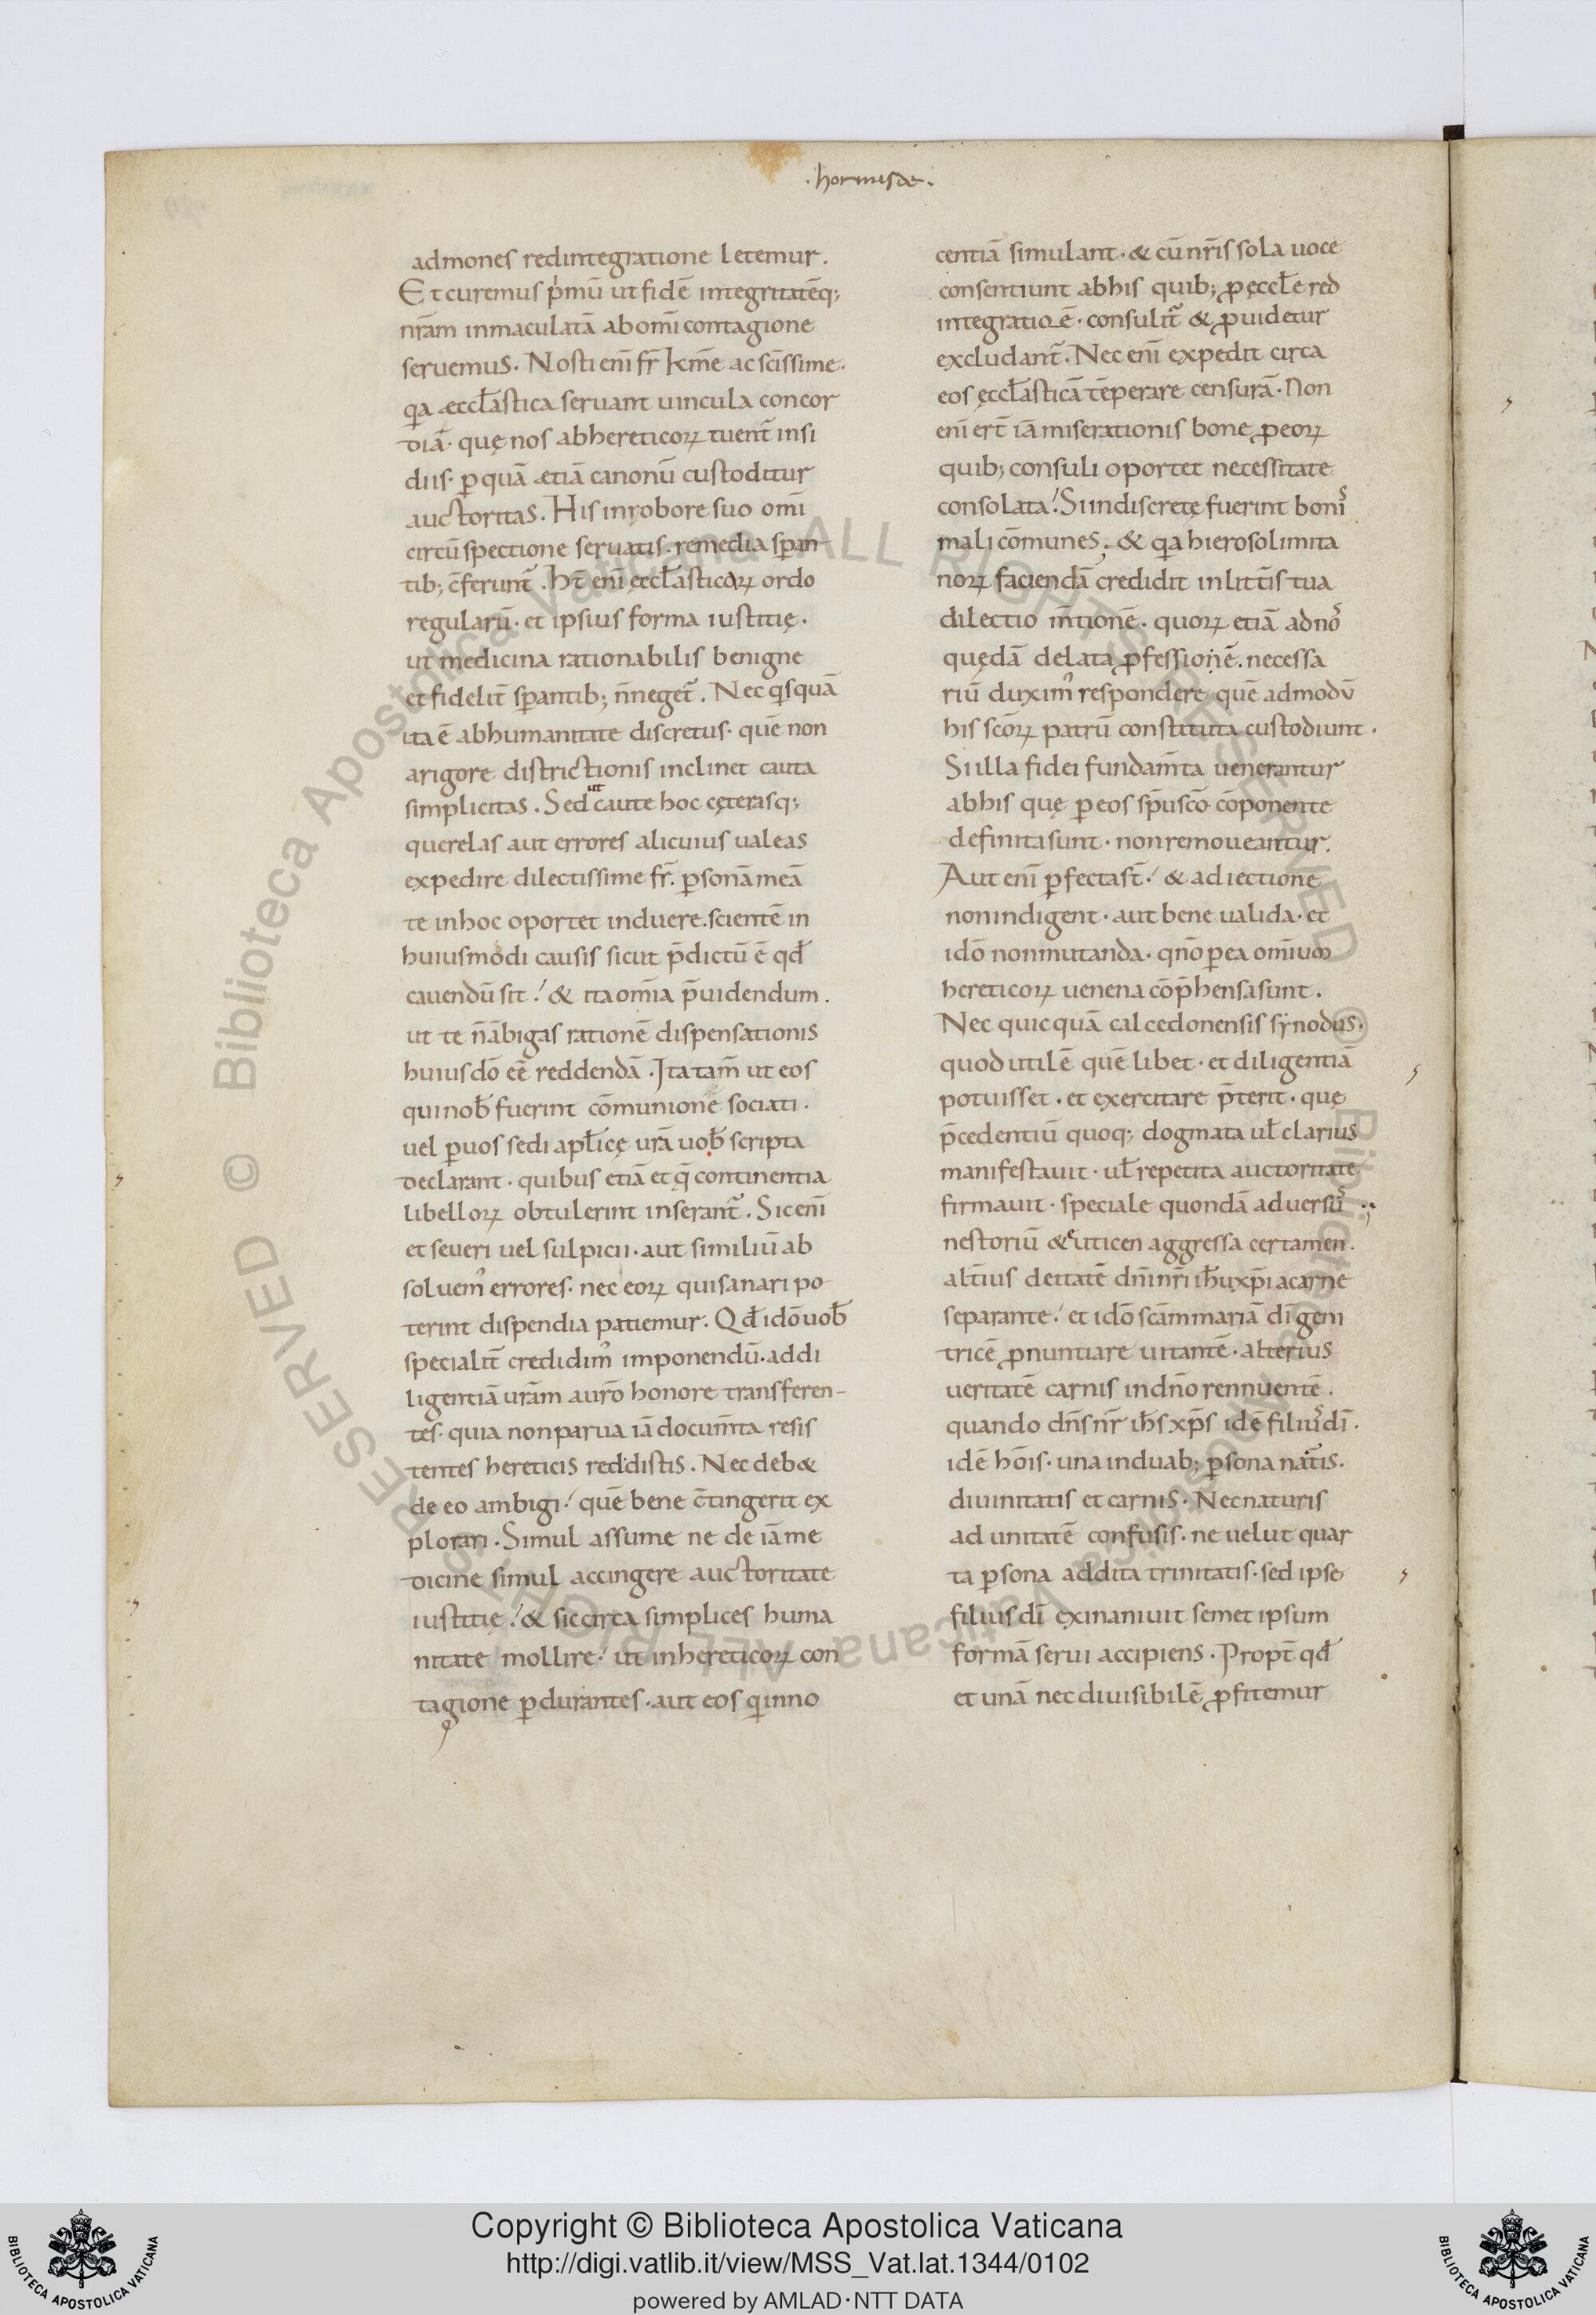 ·hormisde·
admones redintegratione letemur.
Et curemus p̍mū ut fidē integritatēq;
nr̄am inmaculatā ab om̄i contagione
seruemus. Nosti eni̅ fr̄ km̄e ac sc̄issime·
qa æccl̄astica seruant uincula concor
diā· quę nos ab hereticoꝝ tuent̄ insi
diis· ꝑ quā ætiā canonū custoditur
auctoritas. His in robore suo om̄i
circū spectione seruatis. remedia sꝑan-
tib; c̄ferunt̄. Ht̄ eni̅ ęccl̄asticoꝝ ordo
regularū· et ipsius forma iustitię·
ut medicina rationabilis benigne
et fidelit̄ sꝑantib; n̄ neget̄. Nec qisquā
ita ē ab humanitate discretus· quē non
a rigore districtionis inclinet cauta
simplicitas. Sed ut caute hoc cęterasq;
querelas aut errores alicuius ualeas
expedire dilectissime fr̄. ꝑsonā meā
te in hoc oportet induere. scientē in
huiusmodi causis sicut p̄dictū ē qđ
cauendū sit! & ita om̄ia p̄uidendum.
ut te n̄ ābigas rationē dispensationis
huiusdō eē reddendā. Ita tam̄ ut eos
qui nob̄ fuerint cōmunione sociati.
uel ꝑ uos sedi apl̄icę ur̄a uob̄ scripta
declarant· quibus etiā et q̄ continentia
libelloꝝ obtulerint inserant̄. Sic eni̅
et seueri uel sulpicii· aut similiū ab
soluem᾿ errores· nec eoꝝ qui sanari po
terint dispendia patiemur. Qđ idō uob̄
specialit̄ credidim᾿ imponendū· ad di
ligentiā ur̄am aur̄o honore transferen-
tes· quia non parua iā docum̄ta resis
tentes hereticis reddistis. Nec deb&
de eo ambigi! quē bene c̄tingerit ex
plorari. Simul assume ne de iā me
dicine simul accingere auctoritate
iustitię! & sic circa simplices huma
nitate mollire! ut in hereticoꝝ con
tagione ꝑdurantes· aut eos q̍ inno
centiā simulant· & cū nr̄is sola uoce
consentiunt ab his quib; ꝓ ęccl̄e red
integratioē· consulit̄ & ꝓuidetur
excludant̄. Nec eni̅ expedit circa
eos ęccl̄asticā tēperare censurā. Non
eni̅ ert̄ iā miserationis bone ꝓ eoꝝ
quib; consuli oportet necessitate
consolata! Si indiscretę fuerint bonis
mali cōmunes. & qa hierosolimita
noꝝ faciendā credidit in litt̄is tua
dilectio m̄tionē. quoꝝ etiā ad nos
quędā delata ꝓfessionē. necessa
riū duxim᾿ respondere quē admodū
his sc̄oꝝ patrū constituta custodiunt.
Si illa fidei fundam̄ta uenerantur
ab his quę ꝑ eos sp̄u sc̄o cōponente
definita sunt· non remoueantur.
Aut eni̅ ꝑfecta st̄! & adiectione
non indigent· aut bene ualida· et
idō non mutanda· qn̄o ꝑ ea om̄ium
hereticoꝝ uenena cōp̄hensa sunt.
Nec quicquā calcedonensis synodus·
quod utilē quē libet· et diligentiā
potuisset· et exercitare p̄terit· quę
p̄cedentiū quoq; dogmata ul̄ clarius
manifestauit· ul̄ repetita auctoritate
firmauit· speciale quondā aduersus
nestoriū & euticen aggressa certamen.
alt̄ius deitatē dn̄i nr̄i ih̄u xp̄i a carne
separante! et idō sc̄am mariā di̅ geni
tricē ꝓnuntiare uitantē· alterius
ueritatē carnis in dn̄o rennuentē.
quando dn̄s nr̄ ih̄s xp̄s idē filius di̅.
idē hōis· una in duab; ꝑsona nat̄is·
diuinitatis et carnis. Nec naturis
ad unitatē confusis· ne uelut quar
ta ꝑsona addita trinitatis· sed ipse
filius di̅ exinaniuit semet ipsum
formā serui accipiens. Propt̄ qđ
et unā nec diuisibilē ꝓfitemur
© Biblioteca Apostolica Vaticana ALL RIGHTS RESERVED © Biblioteca Apostolica Vaticana ALL RIGHTS RESERVED
BIBLIOTECA APOSTOLICA VATICANA
Copyright © Biblioteca Apostolica Vaticana
http://digi.vatlib.it/view/MSS_Vat.lat.1344/0102
powered by AMLAD·NTT DATA
BIBLIOTECA APOSTOLICA VATICANA